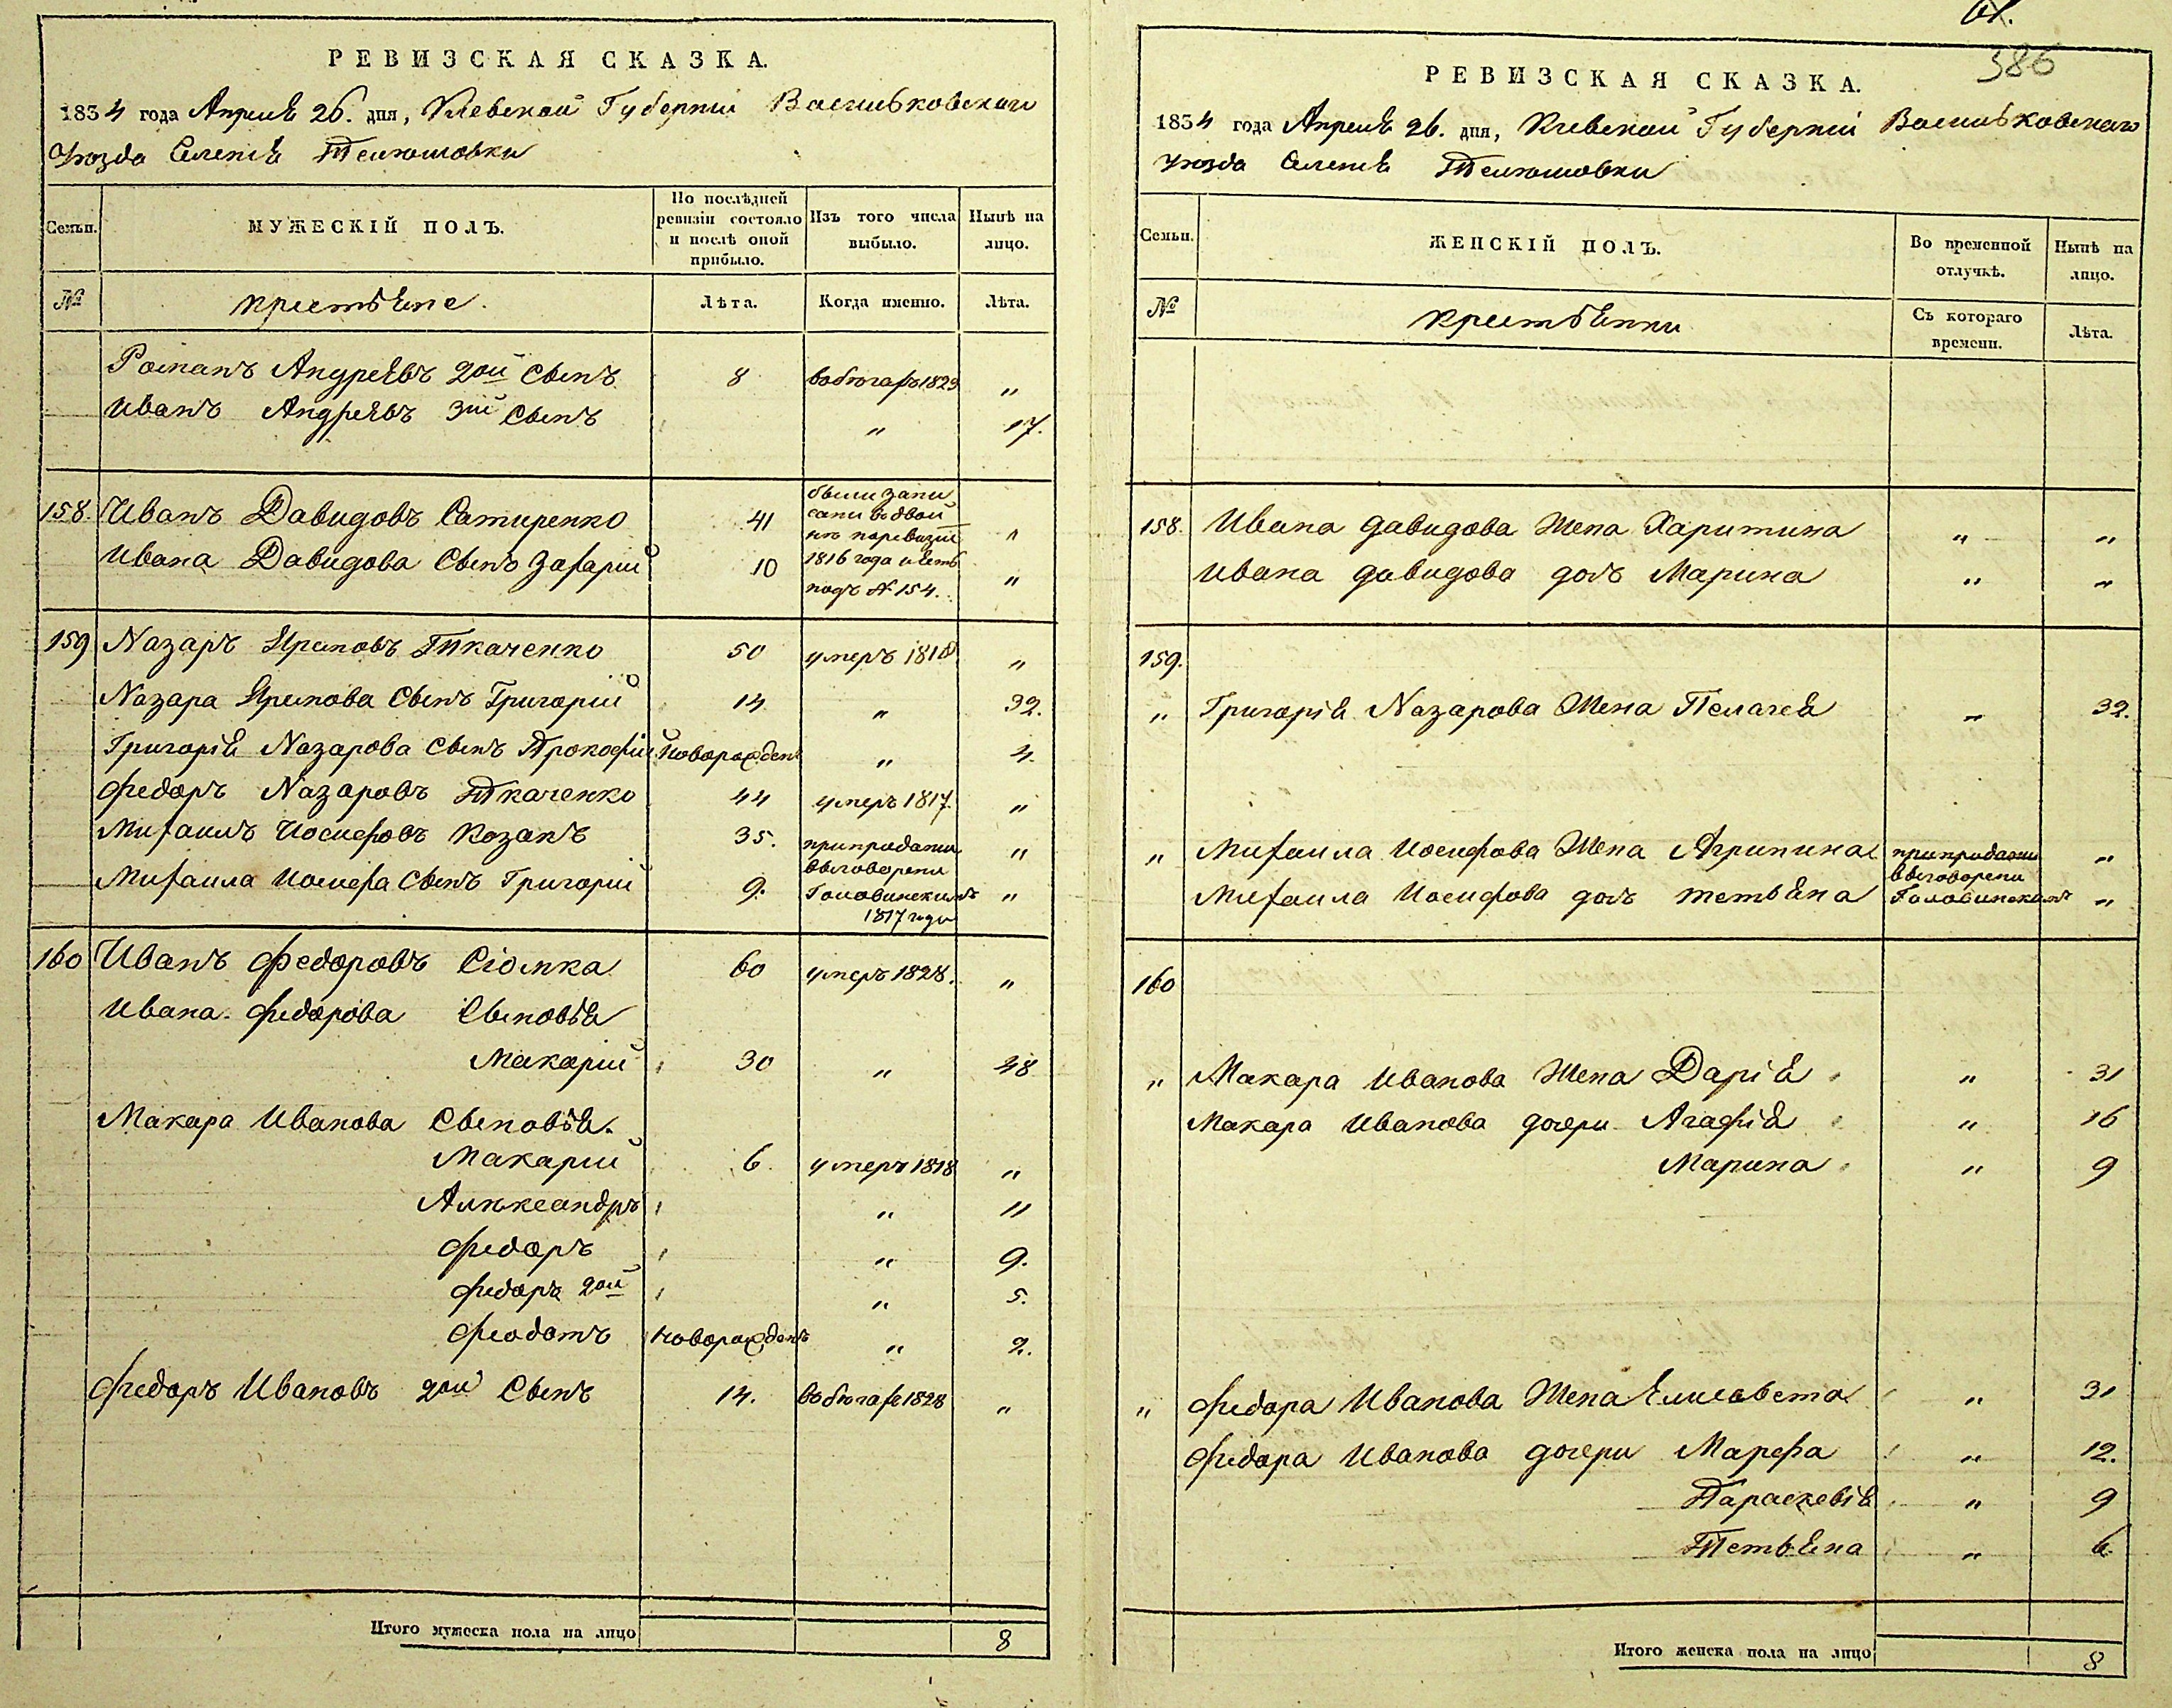 61.
386
РЕВИЗСКАЯ СКАЗКА.
1834 года Апреля 26. дня, Киевской Губернии Васильковскаго
Уѣзда Селенія Телюшовки
Семьи.
МУЖЕСКІЙ ПОЛЪ.
По послѣдней ревизіи состояло и послѣ оной прибыло.
Изъ того числа выбыло.
Нынѣ на лицо.
№
крестьяне.
Лѣта.
Когда именно.
Лѣта.
Романъ Андреявъ 2ой Сынъ 8 въ бѣгахъ 1829 "
Иванъ Андреявъ 3ій Сынъ " 17.
158. Иванъ Давидовъ Сатиренко 41 "
Ивана Давидова Сынъ Захарій 10 "
были запи
саны вдвой
нѣ поревизіи
1816 года и есть
подъ № 154.
159 Назаръ Ириповъ Ткаченко 50 умеръ 1818 "
Назара Ирипова Сынъ Григорій 14 " 32.
Григорія Назарова Сынъ Прокофій новорожденъ " 4.
Федоръ Назаровъ Ткаченко 44 умеръ 1817. "
Михаилъ Іосифовъ Козакъ 35. "
Михаила Іосифа Сынъ Григорій 9. "
припродажи
выговорены
Головинскимъ
1817 года
160 Иванъ Федоровъ Сіомка 60 умеръ 1828. "
Ивана Федорова Сыновья
Макарій 30 " 48
Макара Иванова Сыновья.
Макарій 6 умеръ 1818 "
Алѣксандръ " 11
Федоръ " 9.
Федоръ 2ой " 5.
Феодотъ новорожденъ " 2.
Федоръ Ивановъ 2ой Сынъ 14. въ бѣгахъ 1828 "
Итого мужеска пола на лицо 8
РЕВИЗСКАЯ СКАЗКА.
1834 года Апреля 26. дня, Киевской Губерніи Васильковскаго
Уѣзда Селенія Телюшовки
Семьи.
ЖЕНСКІЙ ПОЛЪ.
Во временной отлучкѣ.
Нынѣ на лицо.
№
крестьянки
Съ котораго времени.
Лѣта.
158. Ивана Давидова Жена Харитина " "
Ивана Давидова дочь Марина " "
159.
" Григорія Назарова Жена Пелагея " 32.
" Михаила Іосифова Жена Агрипина "
Михаила Іосифова дочь Тетьяна "
припродажи
выговорены
Головинскимъ
160
" Макара Иванова Жена Дарія " 31
Макара Иванова дочери Агафія " 16
Марина " 9
" Федора Иванова Жена Елисавета " 31
Федора Иванова дочери Марфа " 12.
Параскевія " 9
Тетьяна " 6.
Итого женска пола на лицо 8